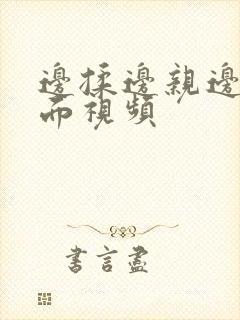 邊揉邊親邊
而視頻
書言盡